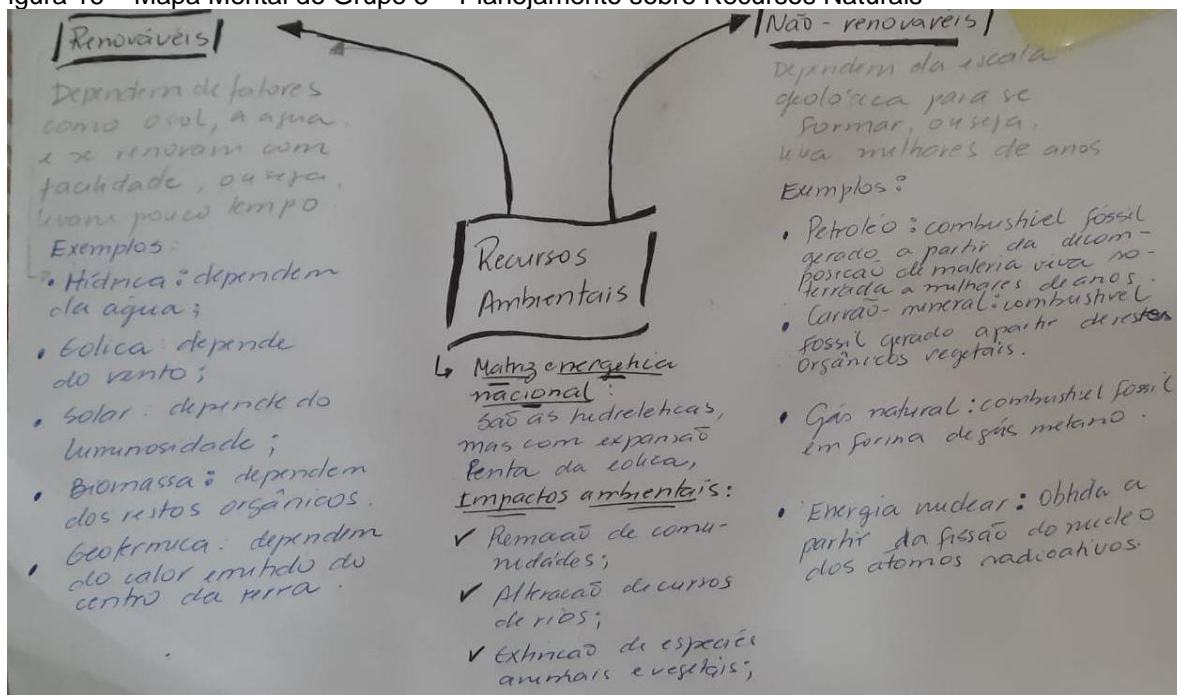 igura 10 – Mapa Mental do Grupo 3 – Planejamento sobre Recursos Naturais
Renováveis
Dependem de fatores
como o sol, a agua
e se renovam com
facilidade, ou seja,
levam pouco tempo
Exemplos:
• Hídrica: dependem
da agua;
• Eolica: depende
do vento;
• Solar: depende do
luminosidade;
• Biomassa: dependem
dos restos orgânicos.
• Geotermica: dependem
do calor emitido do
centro da terra.
Recursos
Ambientais
↳ Matriz energetica
nacional:
São as hidreletricas,
mas com expansão
lenta da eolica,
Impactos ambientais:
✓ Remoção de comu-
nidades;
✓ Alteração de cursos
de rios;
✓ Extinção de especies
animais e vegetais;
Não - renovaveis
Dependem da escala
geológica para se
formar, ou seja,
leva milhares de anos
Exemplos:
• Petroléo: combustivel fóssil
gerado a partir da decom-
posição de materia viva so-
terrada a milhares de anos.
• Carvão-mineral: combustivel
fossil gerado apartir de restos
orgânicos vegetais.
• Gás natural: combustivel fossil
em forma de gás metano.
• Energia nuclear: Obtida a
partir da fissão do nucleo
dos atomos radioativos.